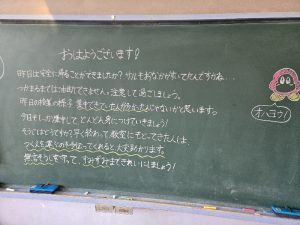 おはようございます!
昨日は安全に帰ることができましたか?サルもおなかがすいてたんですかね…
つかまるまでは油断できません。注意して過ごしましょう。
昨日の授業の様子、集中できていた人が多かったんじゃないかと思います。
今日もしっかり集中して、どんどん身につけていきましょう!
そうじはどうですか?早く終わって教室にもどってきた人は、
つくえを運ぶのを手伝ってくれると、大変助かります。
無言そうじを守って、すみずみまできれいにしましょう!
オハヨウ!